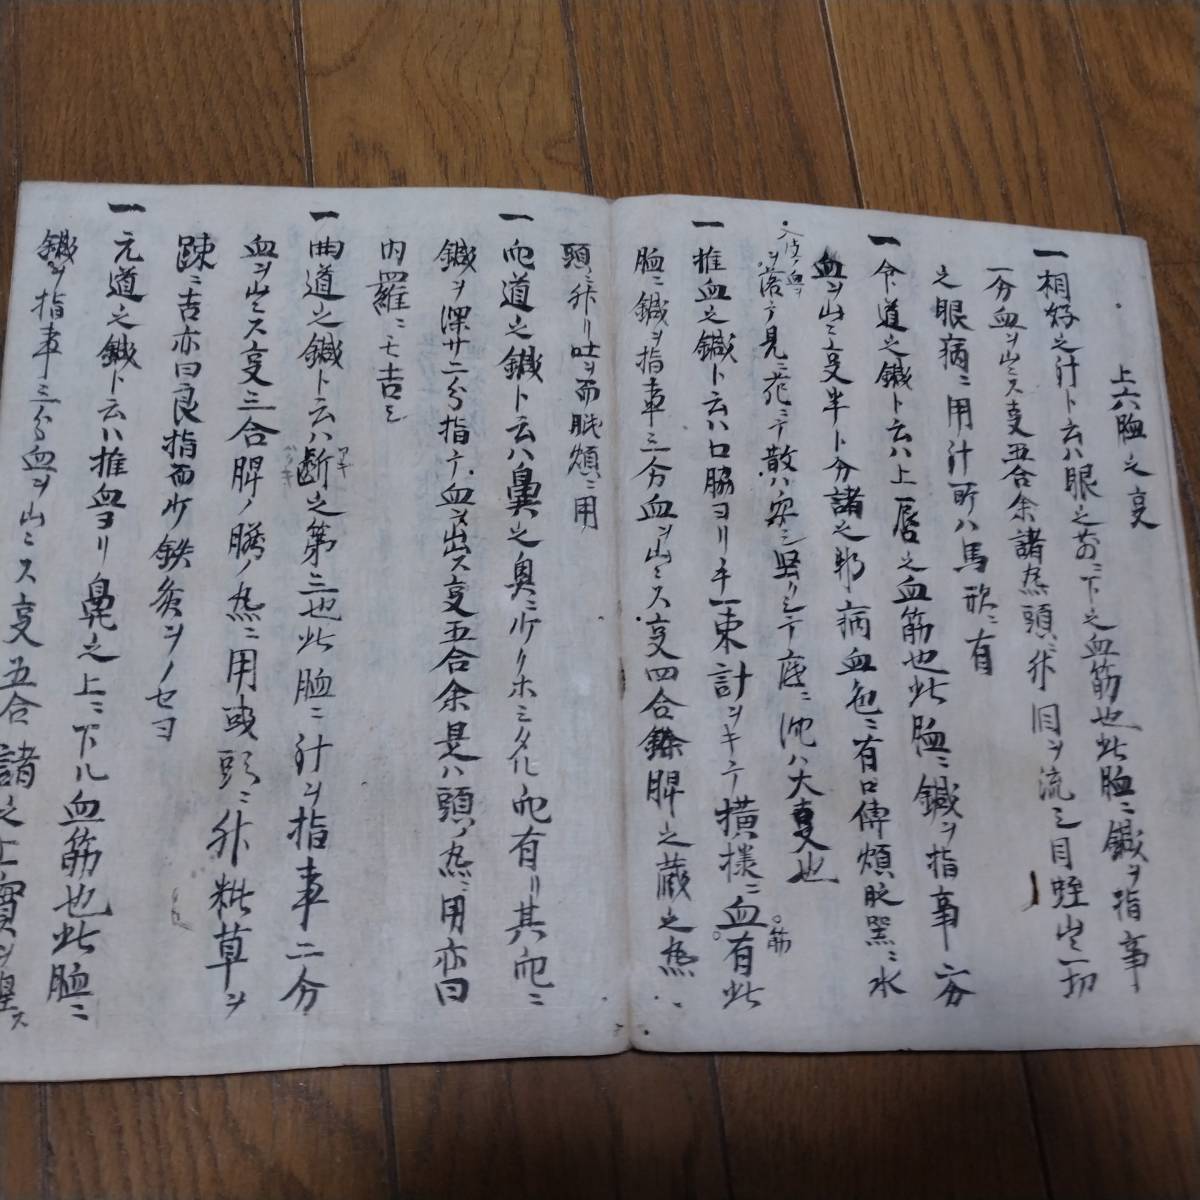 上六脉之事
一相好之針ト云ハ眼之前ニ下之血筋也此脉ニ鍼ヲ指事
一分血ヲ出ス事五合余諸熱頭ニ升目ヲ流シ目蛭出一切
之眼病ニ用針所ハ馬形ニ有
一令道之鍼ト云ハ上唇之血筋也此脉ニ鍼ヲ指事一分
血ヲ出ス事半ト分諸之邪病血色ニ有口傳煩時器ニ水
入彼ノ血ヲ
落テ見ニ花ニテ散ハ安シ堅リシテ底ニ沈ハ大事也
一推血之鍼ト云ハ口脇ヨリ手一束計ヲキテ横様ニ血筋有此
脉ニ鍼ヲ指事三分血ヲ出ス事四合餘脾之蔵之熱
頭ニ升リ吐ヲ而眠煩ニ用
一而道之鍼ト云ハ鼻之奥ニ少クホミタル而有リ其而ニ
鍼ヲ深サ二分指テ血ヲ出ス事五合余是ハ頭ノ熱ニ用亦曰
内羅ニモ吉シ
一曲道之鍼ト云ハ齗之第三也此脉ニ針ヲ指事二分
血ヲ出ス事三合脾ノ臓ノ熱ニ用或頭ニ升糀草ヲ
踈ニ吉亦曰良指而少鉄灸ヲノセヨ
一元道之鍼ト云ハ推血ヨリ鼻之上ニ下ル血筋也此脉ニ
鍼ヲ指事三分血ヲ出ス事五合諸之上實ヲ